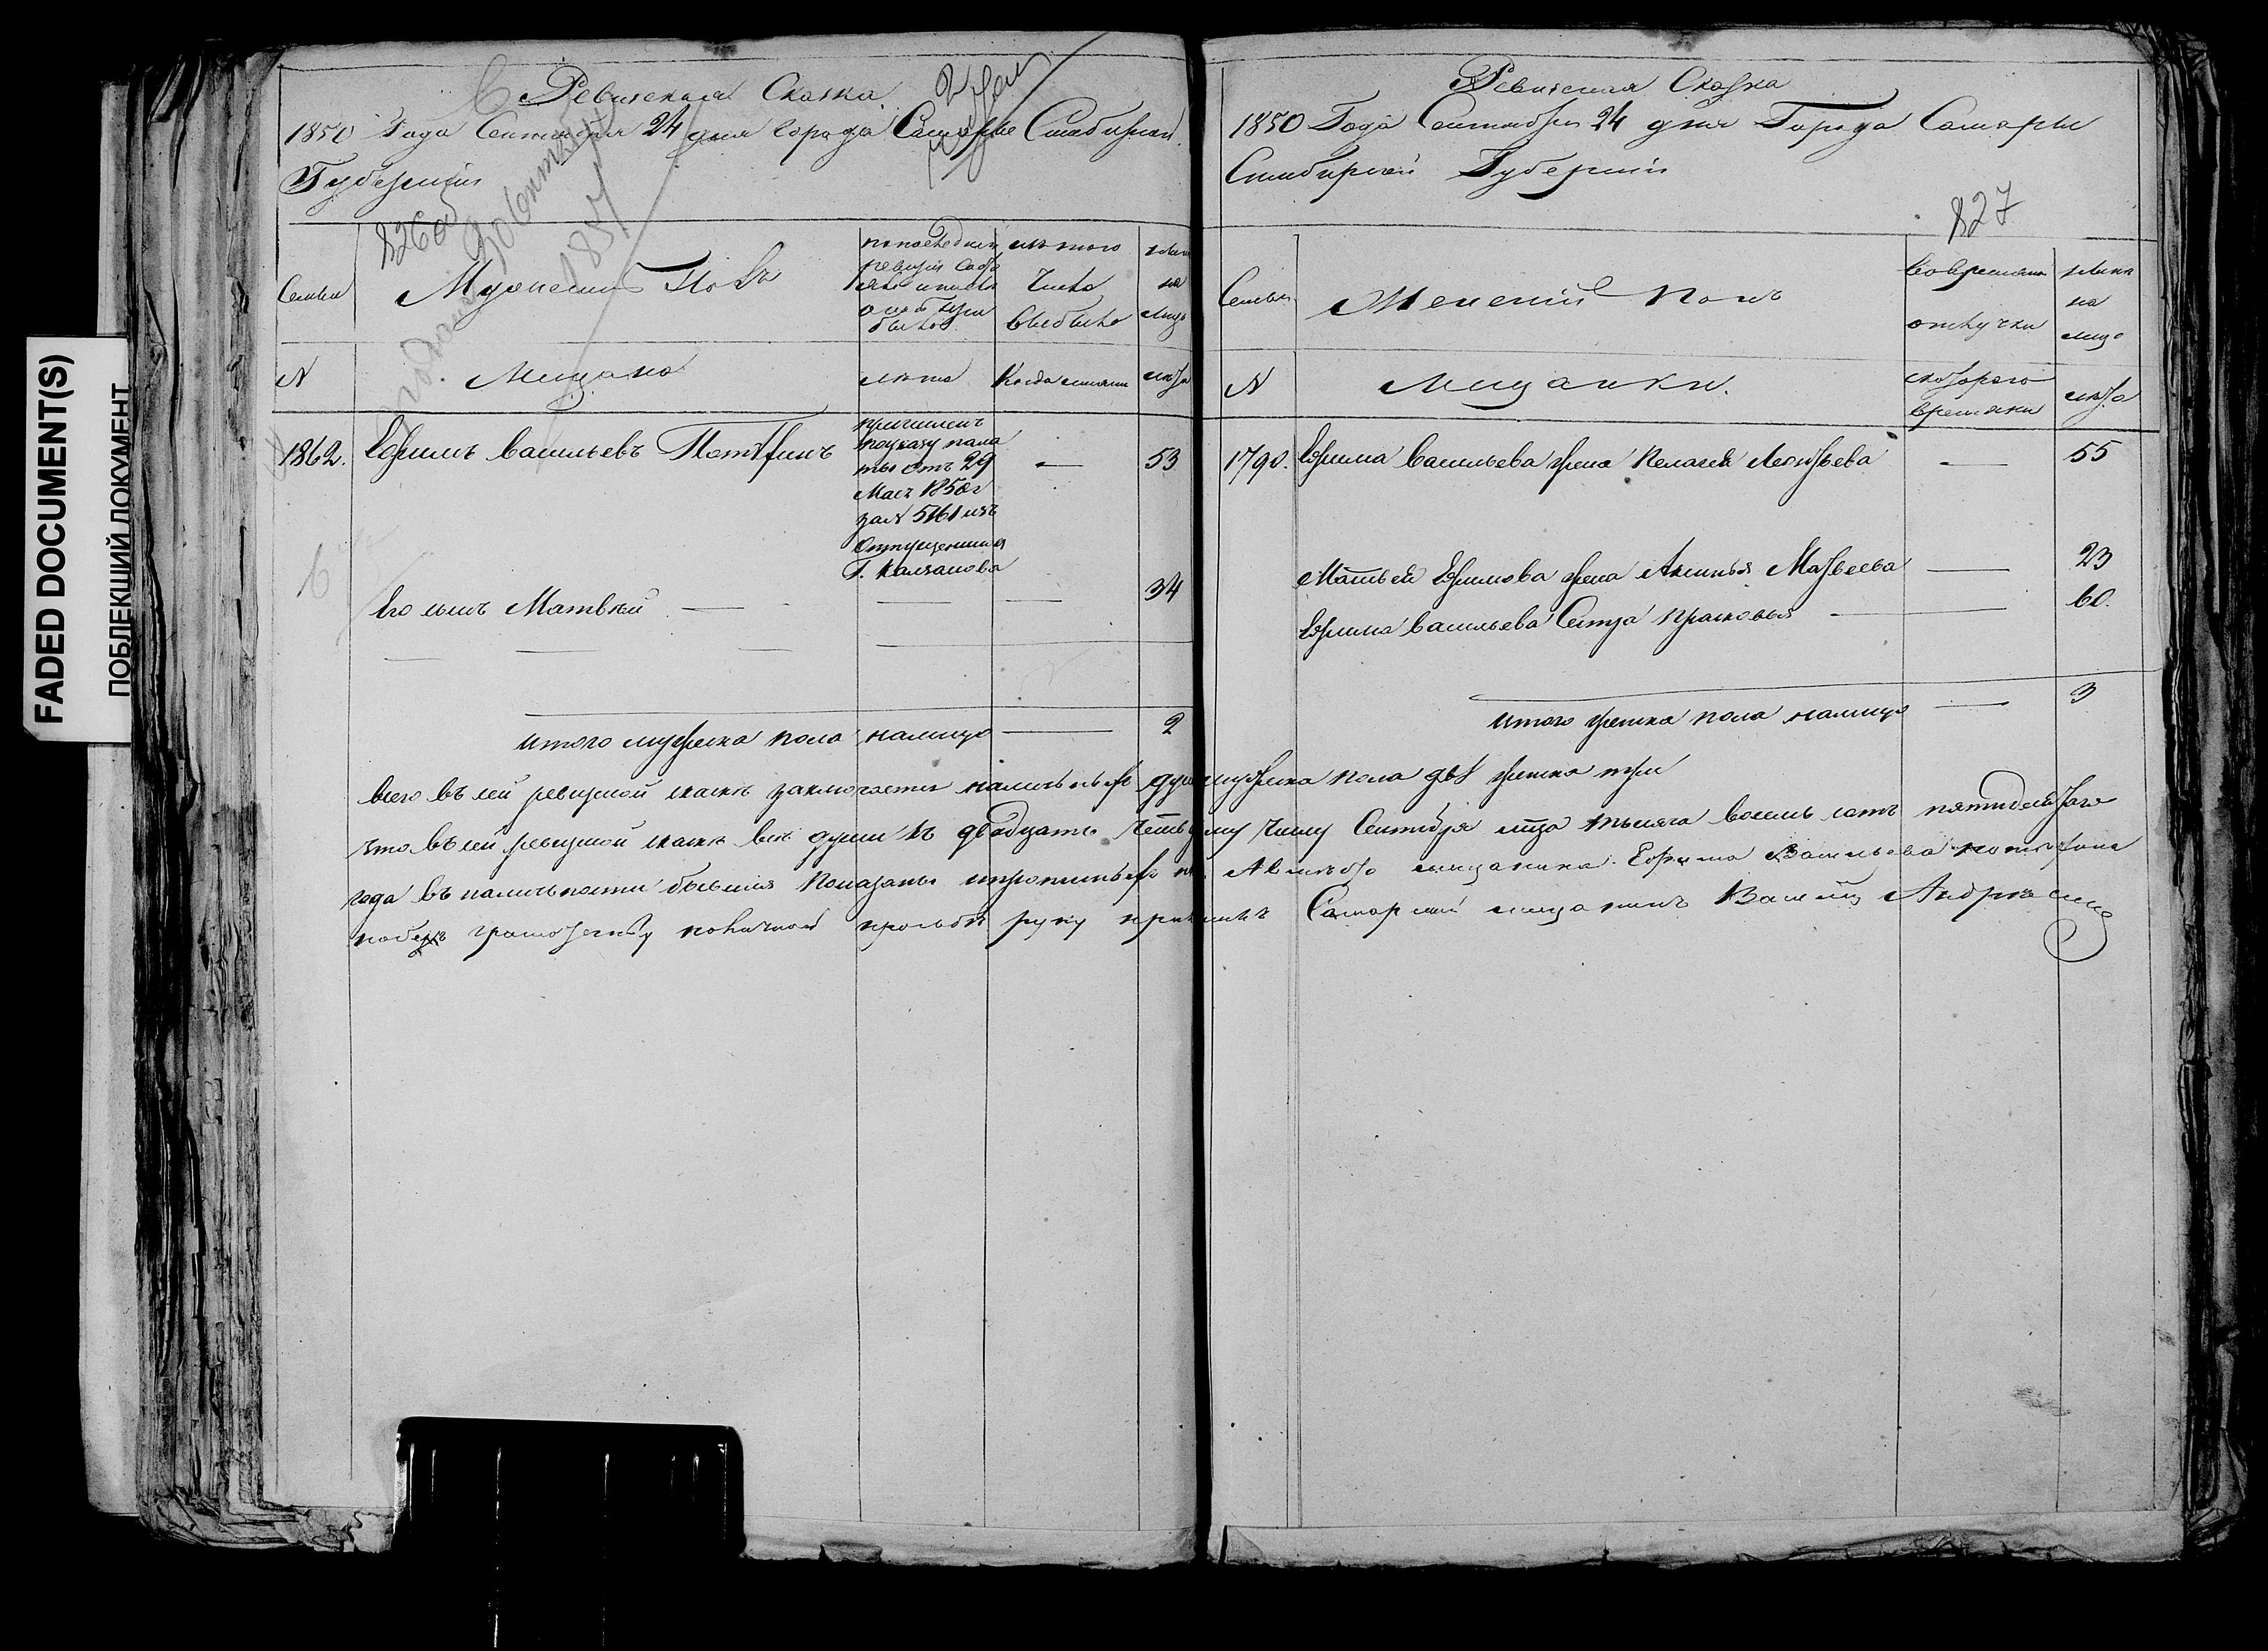 FADED DOCUMENT(S)
ПОБЛЕКШИЙ ДОКУМЕНТ
Ревизская Сказка
1850 Года Сентября 24 дня города Самары Симбирской
Губернии
826об
Семьи
Мужеский Полъ
по последней
ревизии
состояло и после
оной
было
изъ того
числа
выбыло
ныне
на
лицо
N
Мещане
лета
Когда именно
лета
1862.
Ефимъ Васильевъ
причисленъ
по указу пала
ты отъ 29
Мая 1850г
за N 5161 изъ
отпущенныхъ
Г.
—
53
Его сынъ Матвей
34
итого мужеска пола налицо
2
Ревизская Сказка
1850 Года Сентября 24 дня Города Самары
Симбирской Губернии
827
Семьи
Женский полъ
Во временной
отлучке
ныне
на
лицо
N
Мещанки.
с которого
времени
лета
1790.
Ефима Васильева жена Пелагея
—
55
Матвея Ефимова жена Аксинья Матвеева
—
23
Ефима Васильева Сестра Прасковья
60.
итого женска пола налицо
—
3
всего въ сей ревизской сказке заключается наличныхъ душъ мужеска пола две женска три
что въ сей ревизской сказке все души къ двадцать четвертому числу Сентября м-ца тысяча восемь сотъ пятидесятаго
года въ наличности бывшия показаны и прописныхъ нетъ мещанина Ефима Васильева
грамоте по личной прозьбе руку приложилъ Самарский мещанинъ Василий